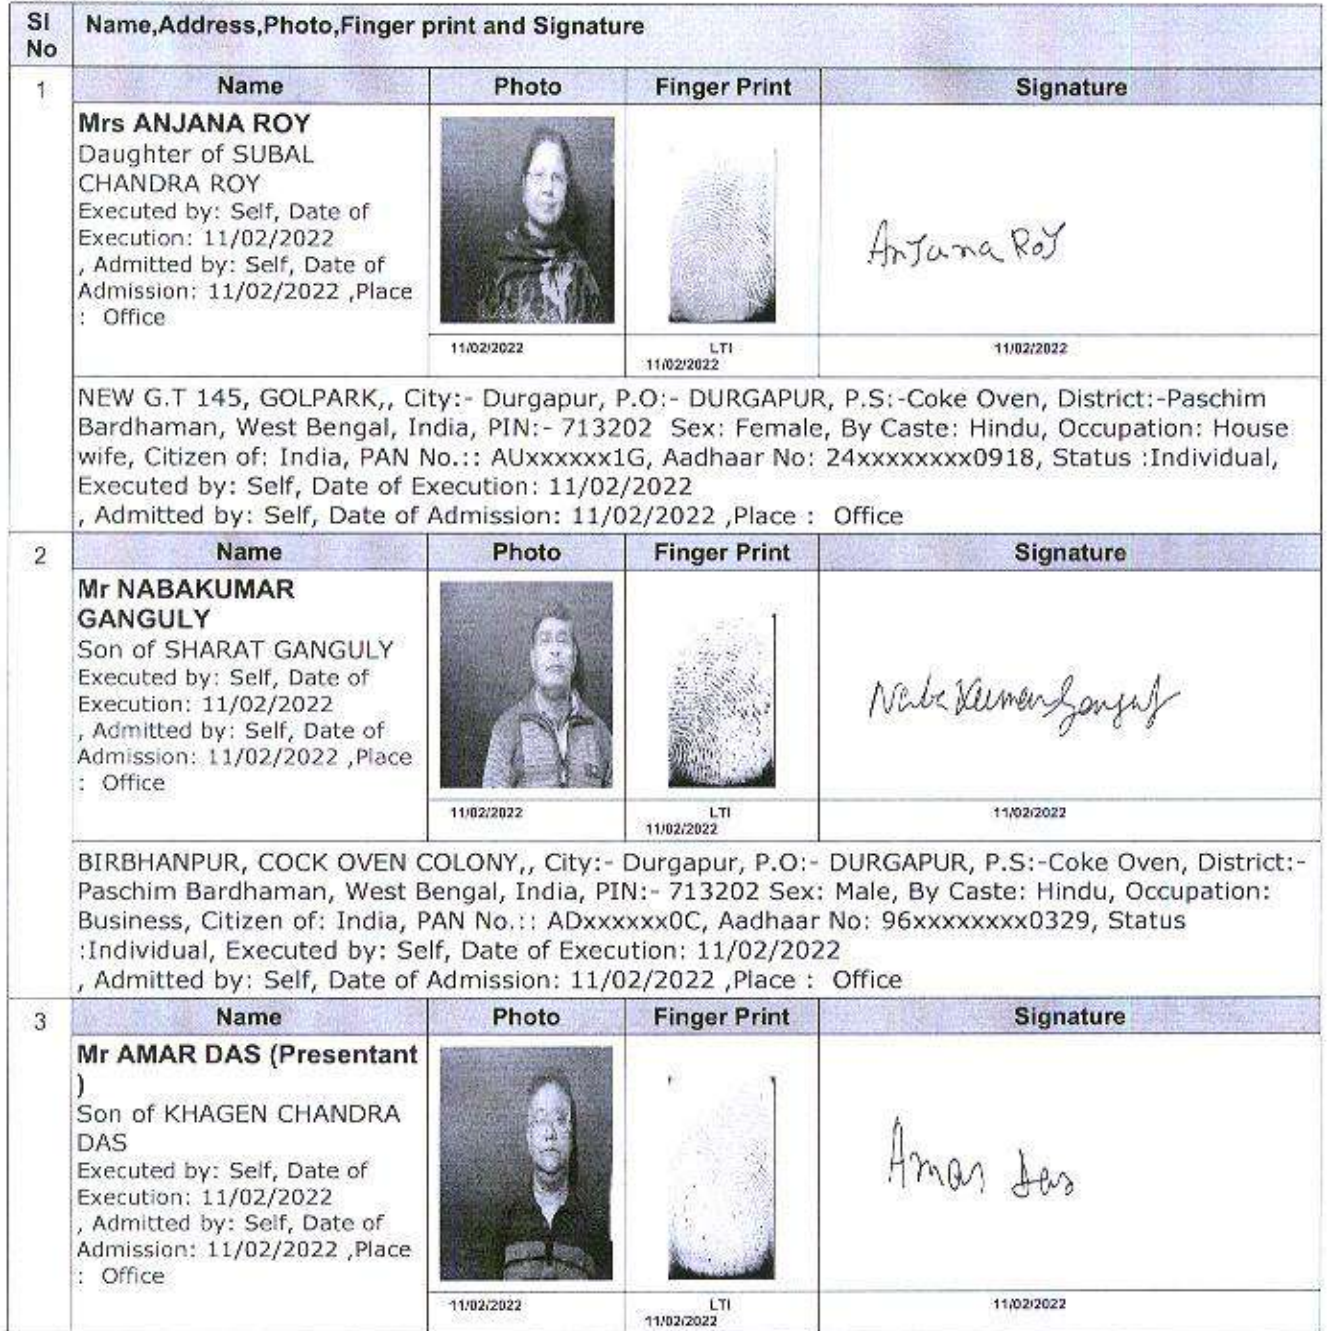 Sl No
Name,Address,Photo,Finger print and Signature
1
Name
Photo
Finger Print
Signature
Mrs ANJANA ROY
Daughter of SUBAL
CHANDRA ROY
Executed by: Self, Date of
Execution: 11/02/2022
, Admitted by: Self, Date of
Admission: 11/02/2022 ,Place
: Office
Anjana Roy
11/02/2022
LTI
11/02/2022
11/02/2022
NEW G.T 145, GOLPARK,, City:- Durgapur, P.O:- DURGAPUR, P.S:-Coke Oven, District:-Paschim
Bardhaman, West Bengal, India, PIN:- 713202 Sex: Female, By Caste: Hindu, Occupation: House
wife, Citizen of: India, PAN No.:: AUxxxxxx1G, Aadhaar No: 24xxxxxxxx0918, Status :Individual,
Executed by: Self, Date of Execution: 11/02/2022
, Admitted by: Self, Date of Admission: 11/02/2022 ,Place : Office
2
Name
Photo
Finger Print
Signature
Mr NABAKUMAR
GANGULY
Son of SHARAT GANGULY
Executed by: Self, Date of
Execution: 11/02/2022
, Admitted by: Self, Date of
Admission: 11/02/2022 ,Place
: Office
Naba Kumar Ganguly
11/02/2022
LTI
11/02/2022
11/02/2022
BIRBHANPUR, COCK OVEN COLONY,, City:- Durgapur, P.O:- DURGAPUR, P.S:-Coke Oven, District:-
Paschim Bardhaman, West Bengal, India, PIN:- 713202 Sex: Male, By Caste: Hindu, Occupation:
Business, Citizen of: India, PAN No.:: ADxxxxxx0C, Aadhaar No: 96xxxxxxxx0329, Status
:Individual, Executed by: Self, Date of Execution: 11/02/2022
, Admitted by: Self, Date of Admission: 11/02/2022 ,Place : Office
3
Name
Photo
Finger Print
Signature
Mr AMAR DAS (Presentant
)
Son of KHAGEN CHANDRA
DAS
Executed by: Self, Date of
Execution: 11/02/2022
, Admitted by: Self, Date of
Admission: 11/02/2022 ,Place
: Office
Amar Das
11/02/2022
LTI
11/02/2022
11/02/2022